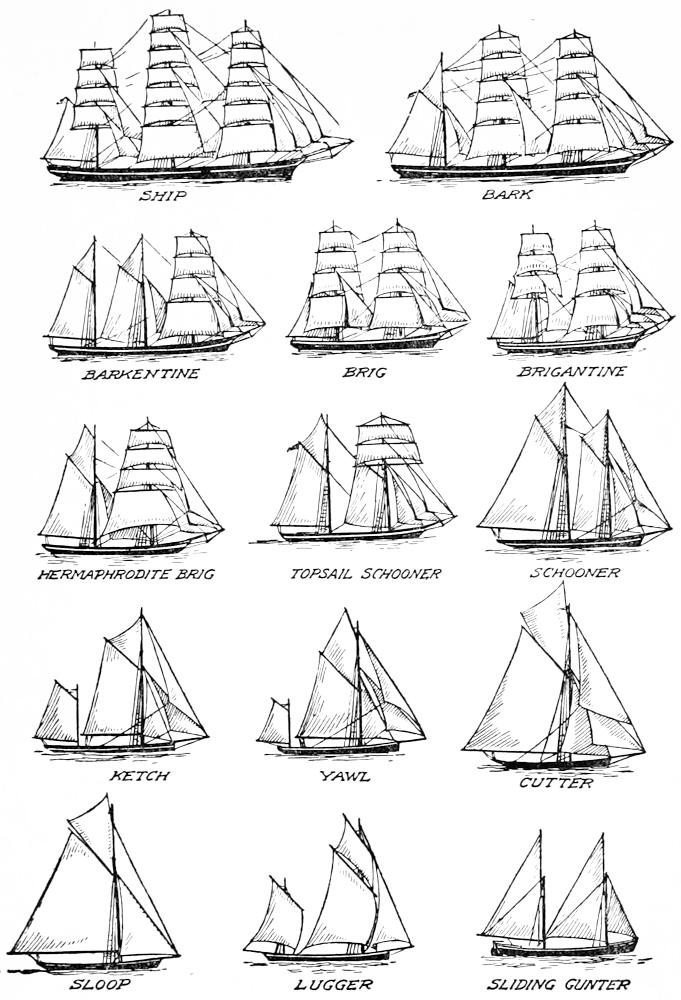 SHIP
BARK
BARKENTINE
BRIG
BRIGANTINE
HERMAPHRODITE BRIG
TOPSAIL SCHOONER
SCHOONER
KETCH
YAWL
CUTTER
SLOOP
LUGGER
SLIDING GUNTER